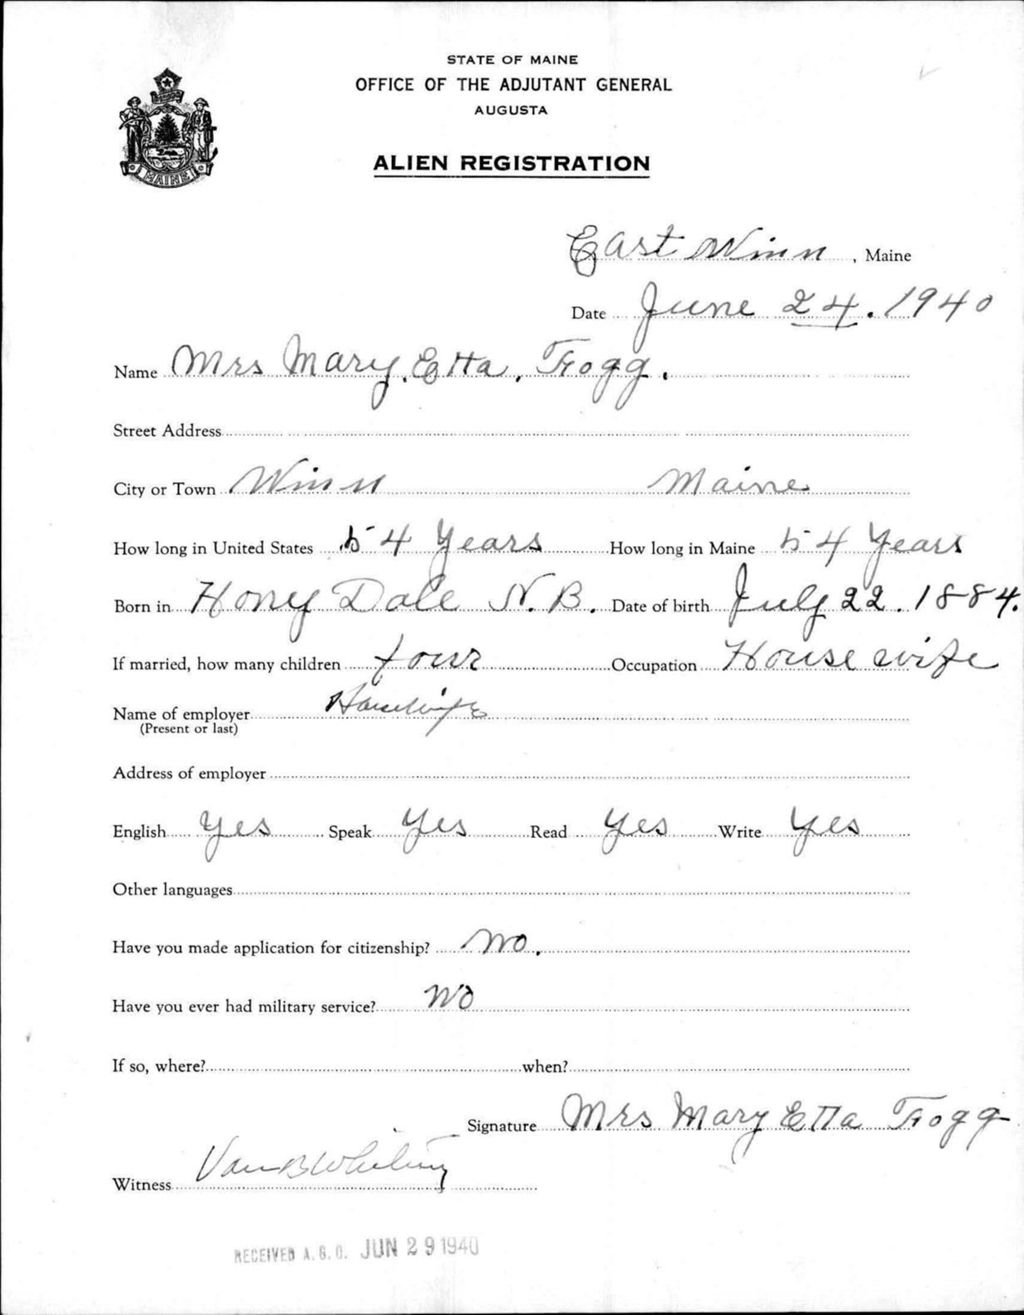 STATE OF MAINE
OFFICE OF THE ADJUTANT GENERAL
AUGUSTA
ALIEN REGISTRATION
MAINE
East Winn, Maine
Date June 24. 1940
Name Mrs Mary. Etta, Frogg.
Street Address
City or Town Winn Maine
How long in United States 54 Years How long in Maine 54 Years
Born in Hony Dale N. B. Date of birth July 22. 1884.
If married, how many children four Occupation House wife
Name of employer Housewife
(Present or last)
Address of employer
English Yes Speak Yes Read Yes Write Yes
Other languages
Have you made application for citizenship? No.
Have you ever had military service? No
If so, where? when?
Signature Mrs Mary Etta Frogg
Witness Van B Whiting
RECEIVED A. G. O. JUN 29 1940